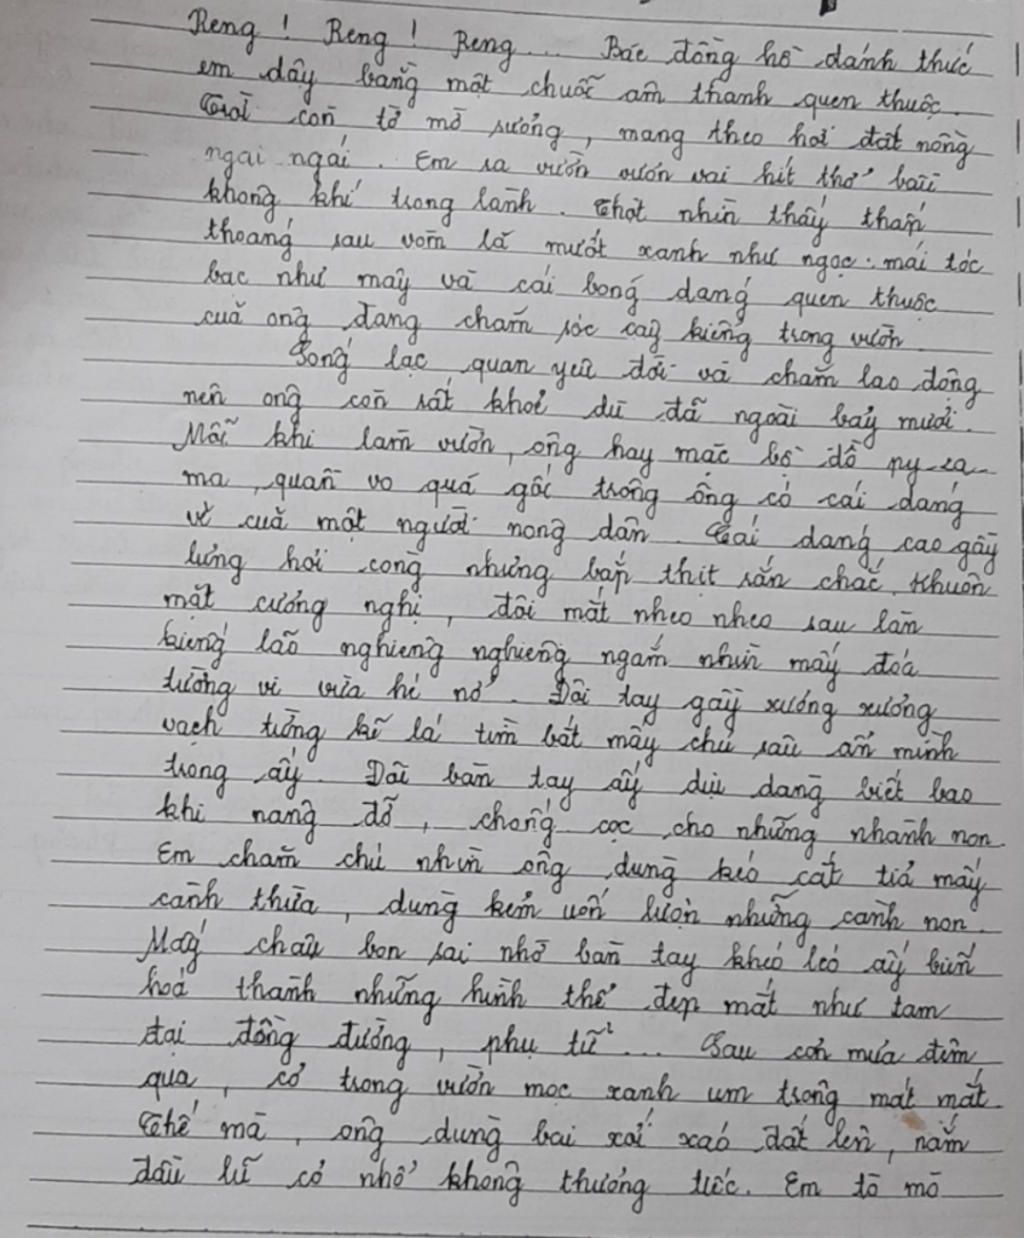 Reng ! Reng ! Reng ... Bác đồng hồ đánh thức
em dậy bằng một chuỗi âm thanh quen thuộc.
Trời còn tờ mờ sương, mang theo hơi đất nồng
ngai ngái. Em ra vườn vươn vai hít thở bầu
không khí trong lành. Chợt nhìn thấy thấp
thoáng sau vòm lá mướt xanh như ngọc: mái tóc
bạc như mây và cái bóng dáng quen thuộc
của ông đang chăm sóc cây kiểng trong vườn.
Sống lạc quan yêu đời và chăm lao động
nên ông còn rất khoẻ dù đã ngoài bảy mươi.
Mỗi khi làm vườn, ông hay mặc bộ đồ py-za-
ma, quần vo quá gối trông ông có cái dáng
vẻ của một người nông dân. Cái dáng cao gầy
lưng hơi còng nhưng bắp thịt rắn chắc. Khuôn
mặt cương nghị, đôi mắt nheo nheo sau làn
kiếng lão nghiêng nghiêng ngắm nhìn mấy đoá
tường vi vừa hé nở. Đôi tay gầy xương xương
vạch từng kẽ lá tìm bắt mấy chú sâu ẩn mình
trong ấy. Đôi bàn tay ấy dịu dàng biết bao
khi nâng đỡ, chống cọc cho những nhành non.
Em chăm chú nhìn ông dùng kéo cắt tỉa mấy
cành thừa, dùng kẽm uốn lượn những cành non.
Mấy chậu bon sai nhờ bàn tay khéo léo ấy biến
hoá thành những hình thể đẹp mắt như tam
đại đồng đường, phụ tử ... Sau cơn mưa đêm
qua, cỏ trong vườn mọc xanh um trông mát mắt
Thế mà, ông dùng bai xới xáo đất lên, nắm
đầu lũ cỏ nhổ không thương tiếc. Em tò mò